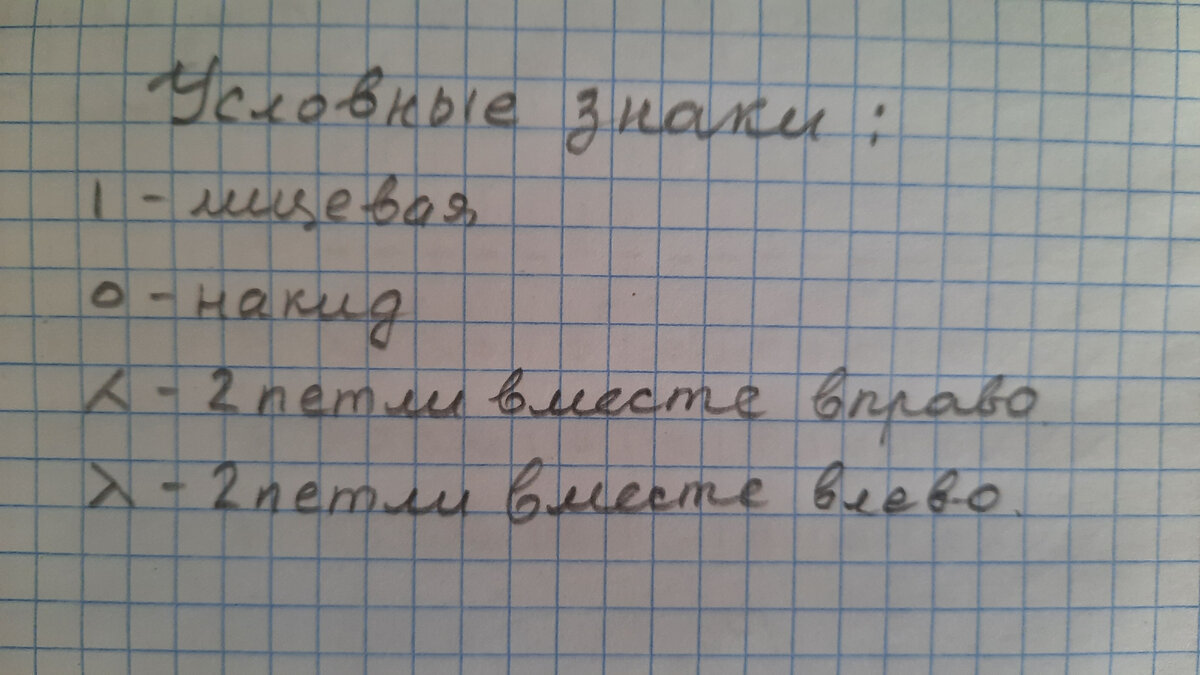 Условные знаки:
I - лицевая
О - накид
⋌ - 2 петли вместе вправо.
λ - 2 петли вместе влево.